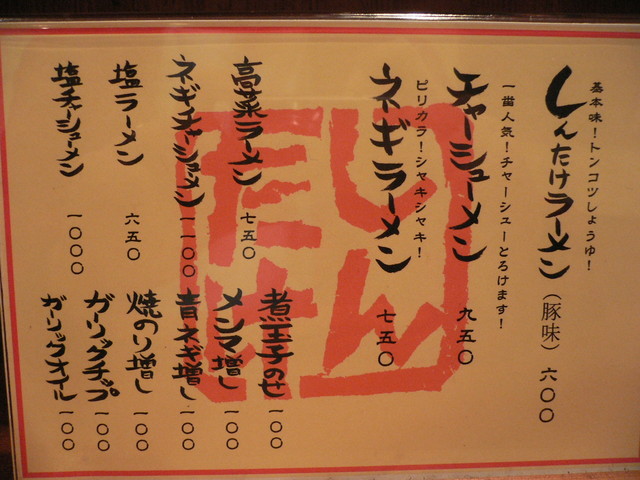 基本味！トンコツしょうゆ！
しんたけラーメン（豚味）六〇〇
一番人気！チャーシューとろけます！
チャーシューメン 九五〇
ピリカラ！シャキシャキ！
ネギラーメン 七五〇
高菜ラーメン 七五〇
ネギチャーシューメン 一一〇〇
塩ラーメン 六五〇
塩チャーシューメン 一〇〇〇
煮玉子のせ 一〇〇
メンマ増し 一〇〇
青ネギ増し 一〇〇
焼のり増し 一〇〇
ガーリックチップ 一〇〇
ガーリックオイル 一〇〇
しんたけ